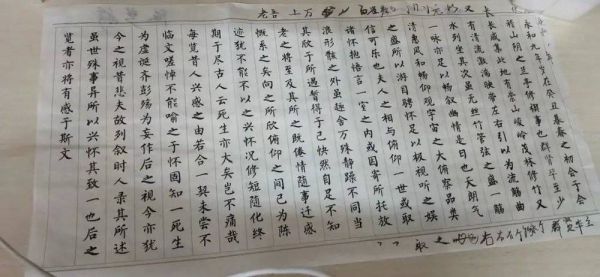 永和九年岁在癸丑暮春之初会于会
稽山阴之兰亭修禊事也群贤毕至少
长咸集此地有崇山峻岭茂林修竹又
有清流激湍映带左右引以为流觞曲
水列坐其次虽无丝竹管弦之盛一觞
一咏亦足以畅叙幽情是日也天朗气
清惠风和畅仰观宇宙之大俯察品类
之盛所以游目骋怀足以极视听之娱
信可乐也夫人之相与俯仰一世或取
诸怀抱悟言一室之内或因寄所托放
浪形骸之外虽趣舍万殊静躁不同当
其欣于所遇暂得于己快然自足不知
老之将至及其所之既倦情随事迁感
慨系之矣向之所欣俯仰之间已为陈
迹犹不能不以之兴怀况修短随化终
期于尽古人云死生亦大矣岂不痛哉
每览昔人兴感之由若合一契未尝不
临文嗟悼不能喻之于怀固知一死生
为虚诞齐彭殇为妄作后之视今亦犹
今之视昔悲夫故列叙时人录其所述
虽世殊事异所以兴怀其致一也后之
览者亦将有感于斯文